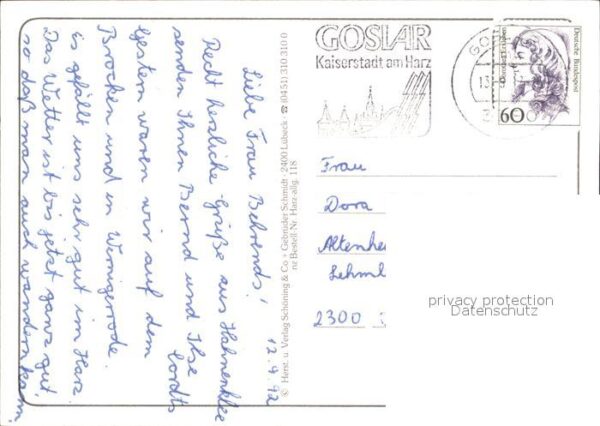 12.9.92
Liebe Frau Behrends!
Recht herzliche Grüße aus Hahnenklee
senden Ihnen Bernd und Ilse
Cordts
Gestern waren wir auf dem
Brocken und in Wernigerode.
Es gefällt uns sehr gut im Harz
Das Wetter ist bis jetzt ganz gut,
so daß man auch wandern kann.
© Herst. u. Verlag Schöning & Co + Gebrüder Schmidt · 2400 Lübeck · ☎ (0451) 310 310 0
nz Bestell-Nr. Harz-allg. 118
GOSLAR
Kaiserstadt am Harz
GO
13.
3
Deutsche Bundespost
60
Frau
Dora
Altenhe
Lehml
2300
privacy protection
Datenschutz